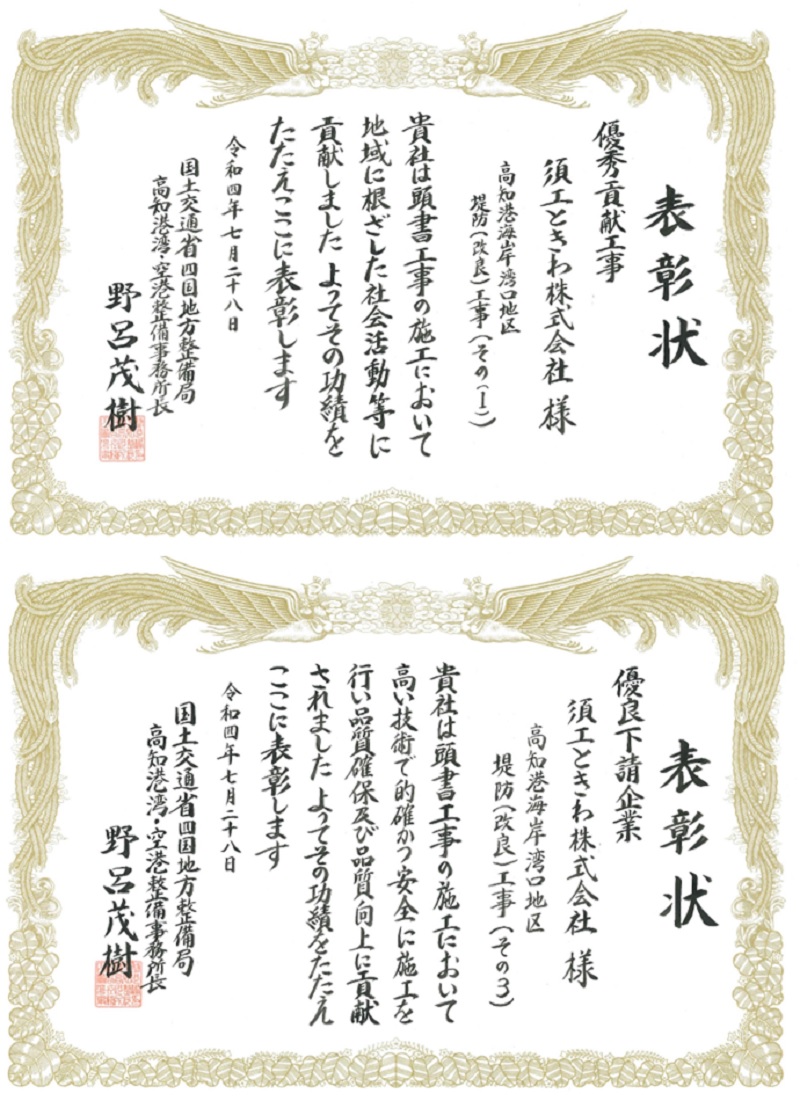 表彰状
優秀貢献工事
須工ときわ株式会社 様
高知港海岸湾口地区
堤防(改良)工事(その(1))
貴社は頭書工事の施工において
地域に根ざした社会活動等に
貢献しました よってその功績を
たたえここに表彰します
令和四年七月二十八日
国土交通省四国地方整備局
高知港湾・空港整備事務所長
野呂茂樹
表彰状
優良下請企業
須工ときわ株式会社 様
高知港海岸湾口地区
堤防(改良)工事(その3)
貴社は頭書工事の施工において
高い技術で的確かつ安全に施工を
行い品質確保及び品質向上に貢献
されました よってその功績をたたえ
ここに表彰します
令和四年七月二十八日
国土交通省四国地方整備局
高知港湾・空港整備事務所長
野呂茂樹